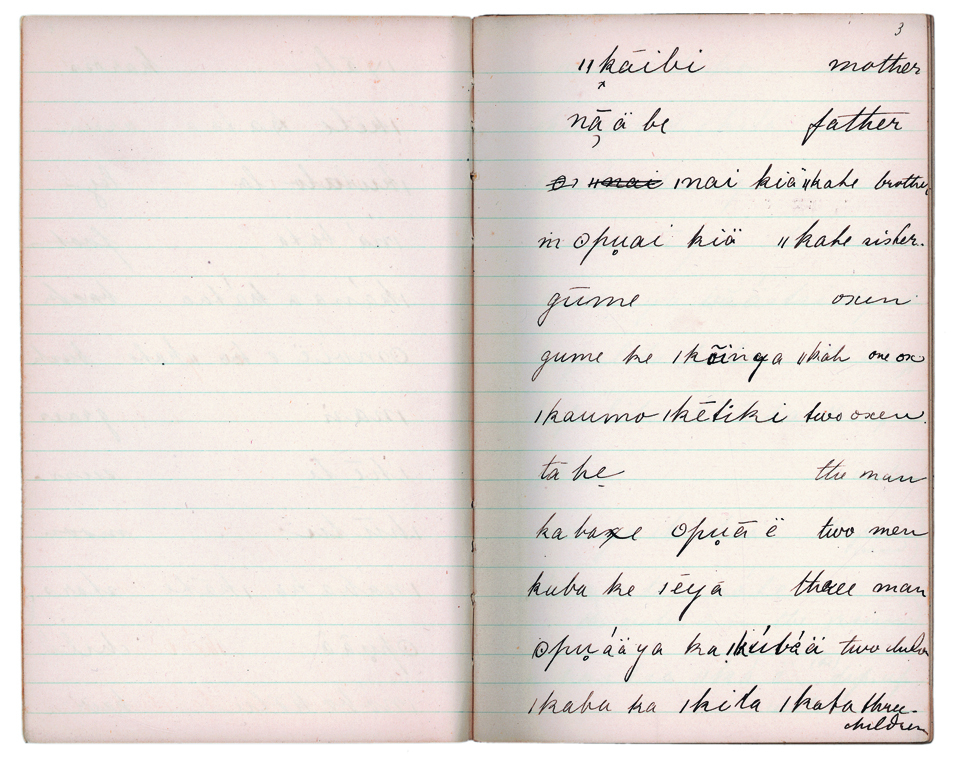 3
"kāibi mother
nā ä be father
ınai kiä "kahe brother
in opu̥ai kiä "kahe sister.
gūme oxen
gume ke ıkõinya "kah one ox
ıkaumo ıkētiki two oxen.
ta he the man
ka baxe opu̥ā ë two men
kuba ke ıēyá three man
opu̥áäya ka ıkúbáä two children
ıkaba ka ıkita ıkata three
children